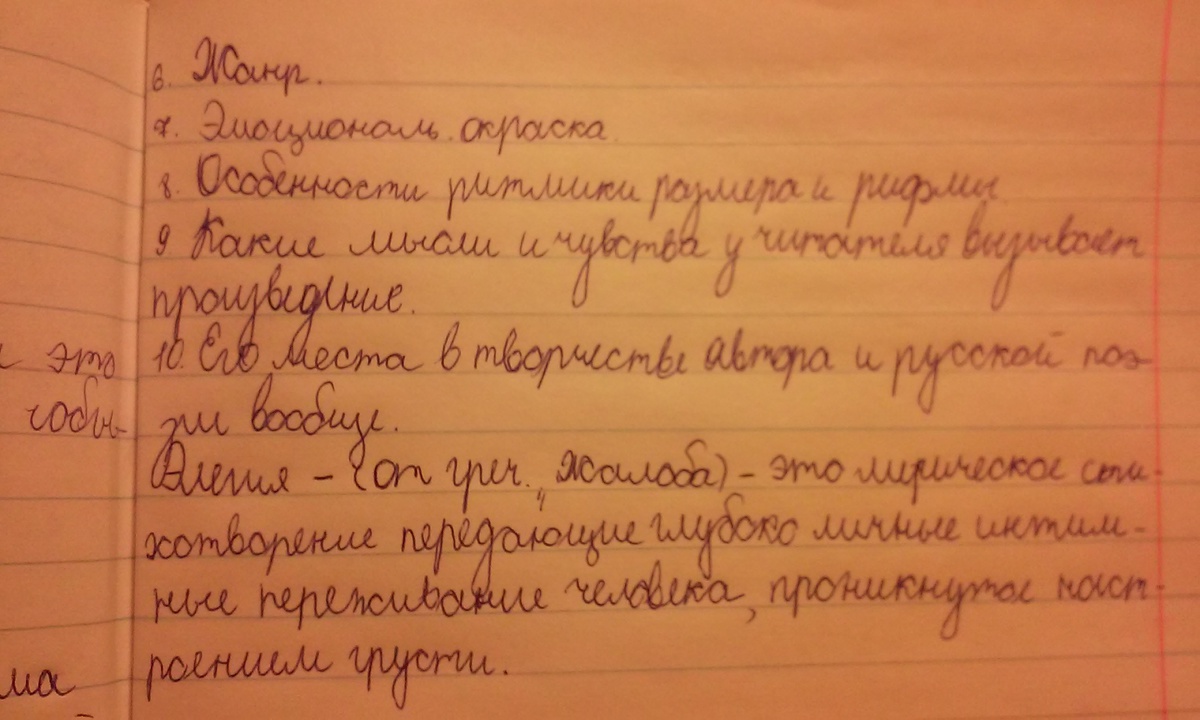 6. Жанр.
7. Эмоциональ. окраска.
8. Особенности ритмики размера и рифмы
9 Какие мысли и чувства у читателя вызывает
произведение.
это 10. Его места в творчестве автора и русской поэ-
чобы- зи вообще.
Элегия – (от греч. „Жалоба) – это лирическое сти-
хотворение передающие глубоко личные интим-
ные переживание человека, проникнутое наст-
ма роением грусти.